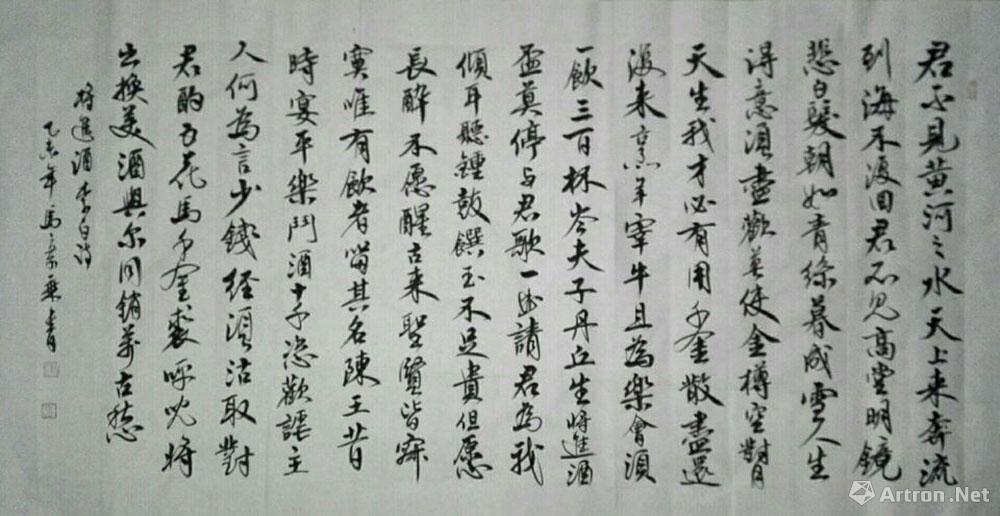 君不見黄河之水天上来奔流
到海不復回君不見高堂明鏡
悲白髮朝如青絲暮成雪人生
得意須盡歡莫使金樽空對月
天生我才必有用千金散盡還
復来烹羊宰牛且為樂會須
一飲三百杯岑夫子丹丘生將進酒
盃莫停与君歌一曲請君為我
傾耳聽鍾鼓饌玉不足貴但愿
長醉不愿醒古来聖賢皆寂
寞唯有飲者留其名陳王昔
時宴平樂鬥酒十千恣歡謔主
人何為言少錢经須沽取對
君酌五花馬千金裘呼兒將
出換美酒與尔同銷萬古愁
將進酒李白詩
乙未年馬書
Artron.Net